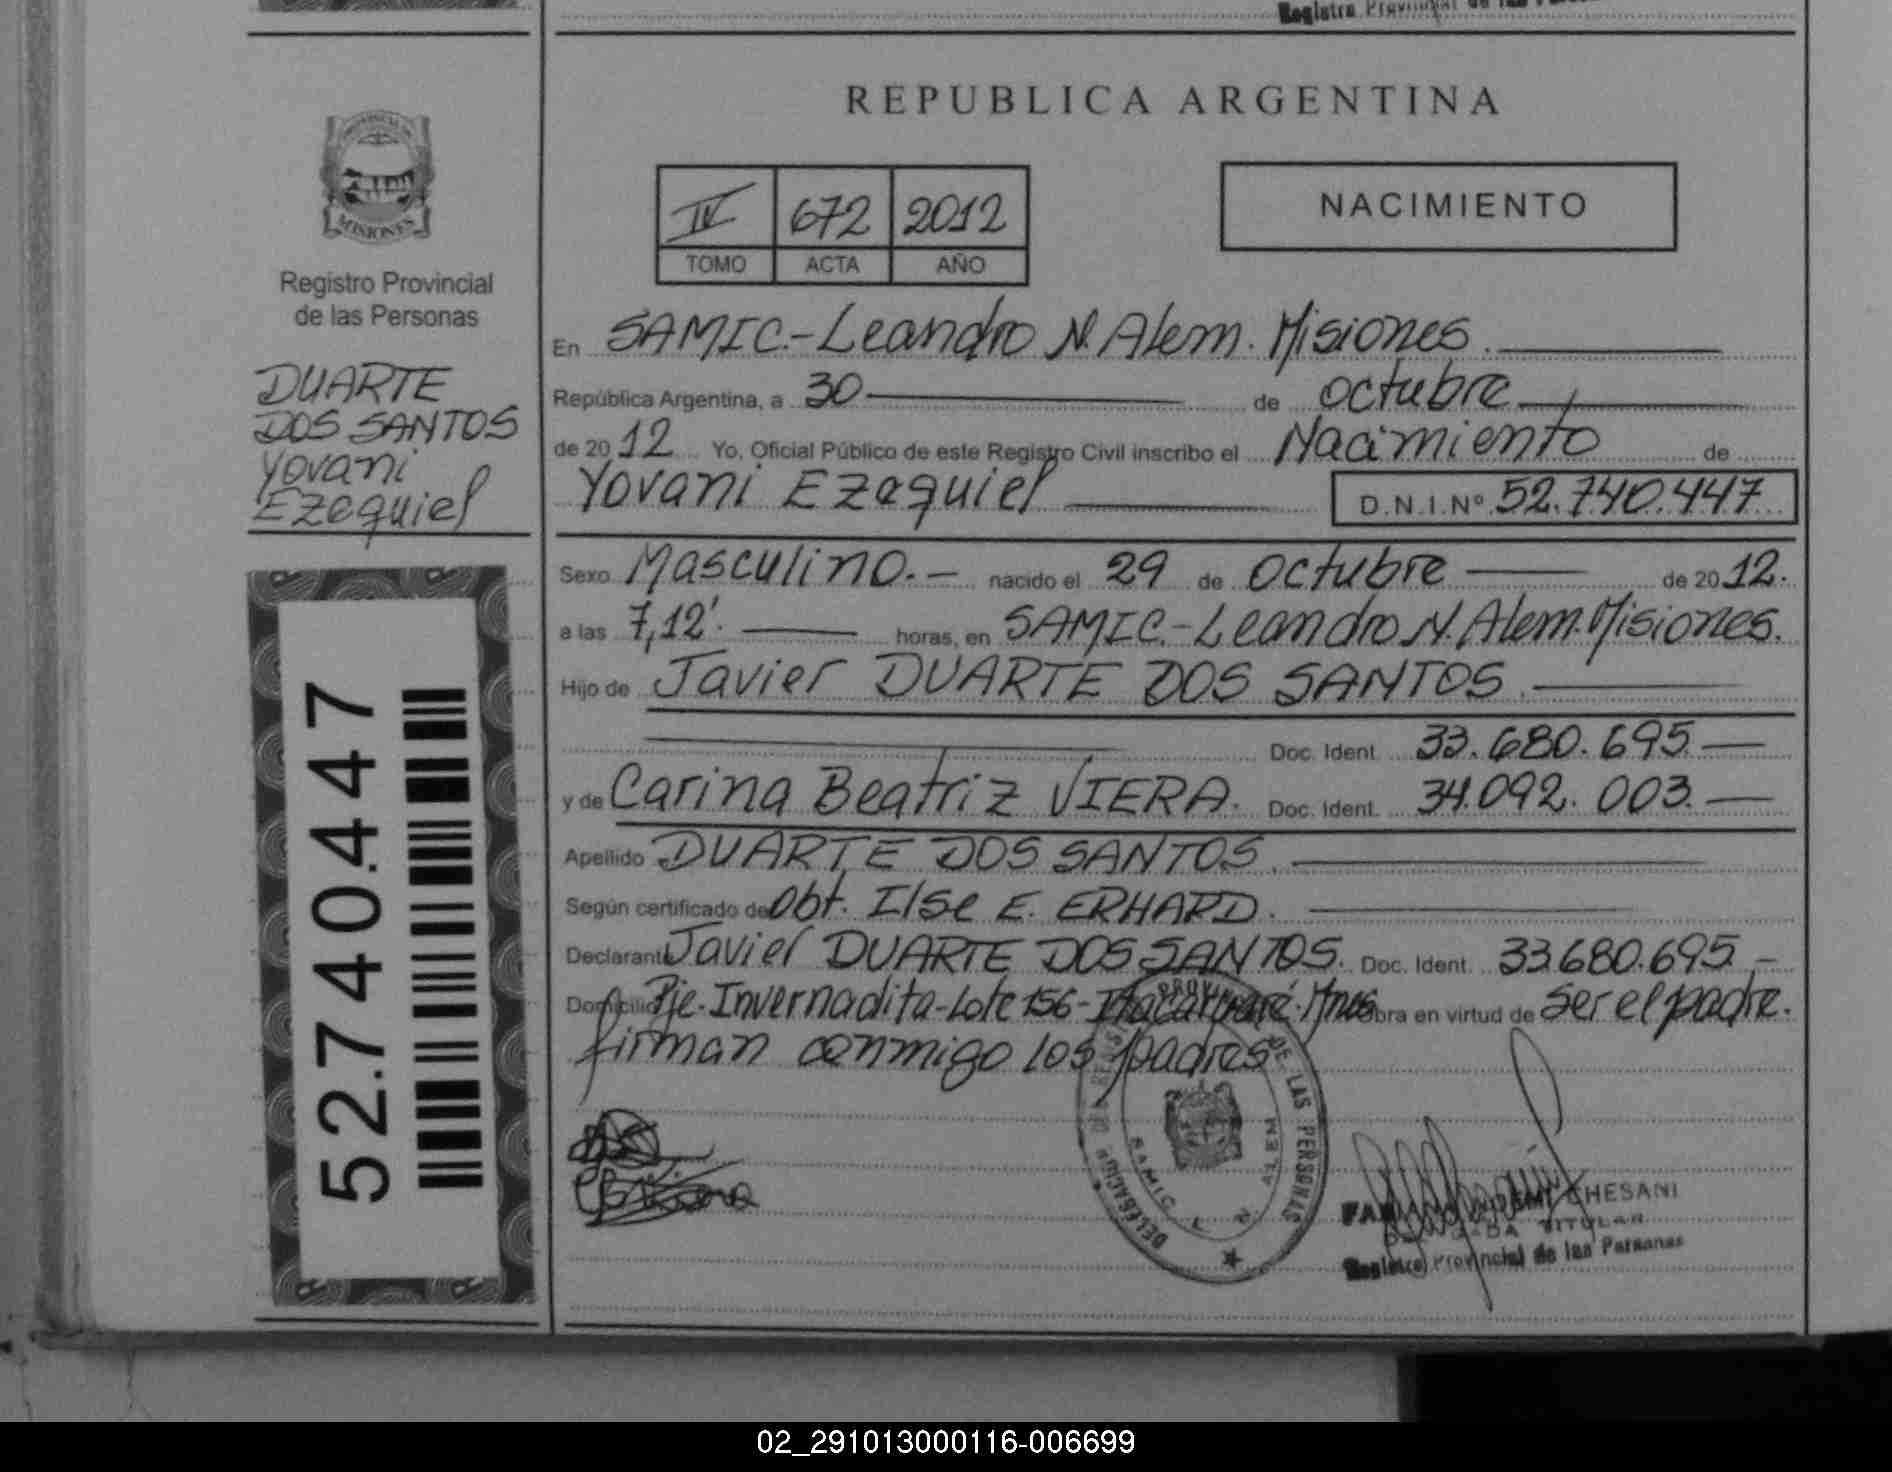 Registro Provincial de las Personas
REPUBLICA ARGENTINA
PROVINCIA DE
MISIONES
Registro Provincial
de las Personas
DUARTE
DOS SANTOS
Yovani
Ezequiel
52.740.447
IV 672 2012
TOMO ACTA AÑO
NACIMIENTO
En SAMIC.-Leandro N. Alem. Misiones.
República Argentina, a 30 de octubre
de 2012 Yo, Oficial Público de este Registro Civil inscribo el Nacimiento de
Yovani Ezequiel D.N.I.Nº 52.740.447
Sexo Masculino.- nacido el 29 de Octubre de 2012.
a las 7,12'. horas, en SAMIC.-Leandro N. Alem. Misiones.
Hijo de Javier DUARTE DOS SANTOS.
Doc. Ident. 33.680.695.
y de Carina Beatriz VIERA. Doc. Ident. 34.092.003.
Apellido DUARTE DOS SANTOS.
Según certificado de Obt. Ilse E. ERHARD.
Declarante Javier DUARTE DOS SANTOS. Doc. Ident. 33.680.695.-
Domicilio Pje. Invernadita-Lote 156-Itacaruaré. Mnes. Obra en virtud de ser el padre.
firman conmigo los padres
DELEGACION PROVIN DE LAS PERSONAS
SAMIC L. N. ALEM
CHESANI
DELEGADA TITULAR
Registro Provincial de las Personas
02_291013000116-006699